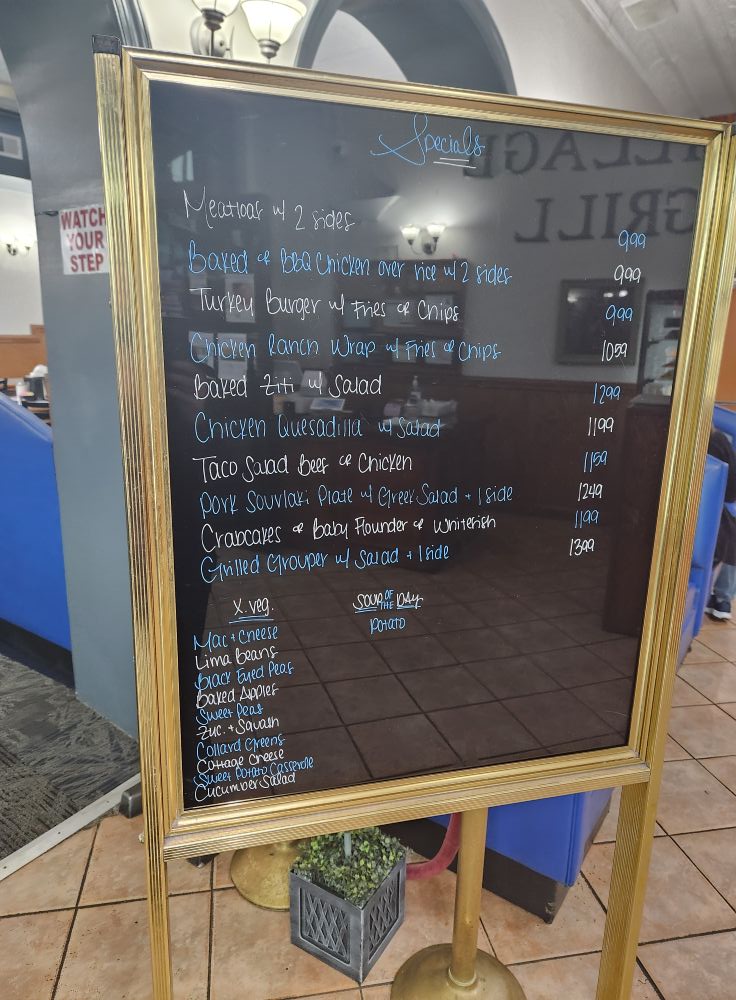 Specials
ILLAGE
GRILL
WATCH
YOUR
STEP
Meatloaf w/ 2 sides 999
Baked or BBQ Chicken over rice w/ 2 sides 999
Turkey Burger w/ Fries or Chips 999
Chicken Ranch Wrap w/ Fries or Chips 1059
Baked Ziti w/ Salad 1299
Chicken Quesadilla w/ Salad 1199
Taco Salad Beef or Chicken 1159
Pork Souvlaki Plate w/ Greek Salad + 1 side 1249
Crabcakes or Baby Flounder or Whitefish 1199
Grilled Grouper w/ Salad + 1 side 1399
X. veg.
Mac + Cheese
Lima Beans
Black Eyed Peas
Baked Apples
Sweet Peas
Zuc. + Squash
Collard Greens
Cottage Cheese
Sweet Potato Casserole
Cucumber Salad
SOUP OF THE DAY
Potato